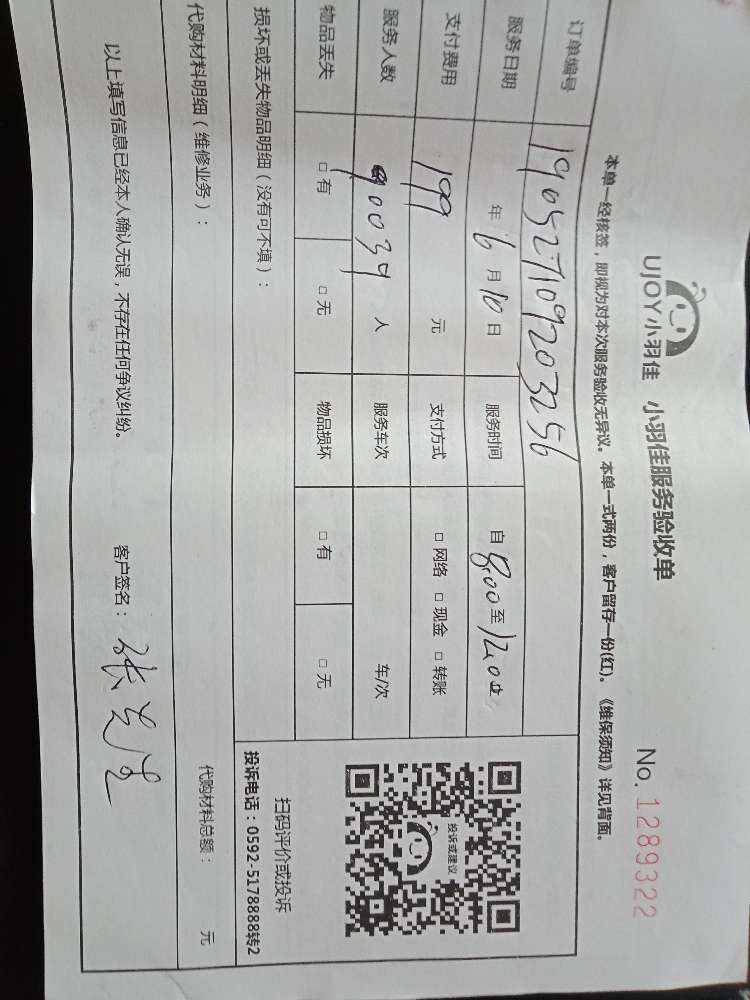 UJOY小羽佳 小羽佳服务验收单 No.1289322
本单一经核签，即视为对本次服务验收无异议。本单一式两份，客户留存一份(红)。《维保须知》详见背面。
订单编号 190527109203256
服务日期 年 6 月 10 日 服务时间 自 8:00 至 12:00
支付费用 199 元 支付方式 □ 网络 □ 现金 □ 转账
服务人数 90039 人 服务车次 车/次
物品丢失 □ 有 □ 无 物品损坏 □ 有 □ 无
投诉或建议
扫码评价或投诉
投诉电话：0592-5178888转2
损坏或丢失物品明细（没有可不填）：
代购材料明细（维修业务）： 代购材料总额： 元
以上填写信息已经本人确认无误，不存在任何争议纠纷。 客户签名：张先生